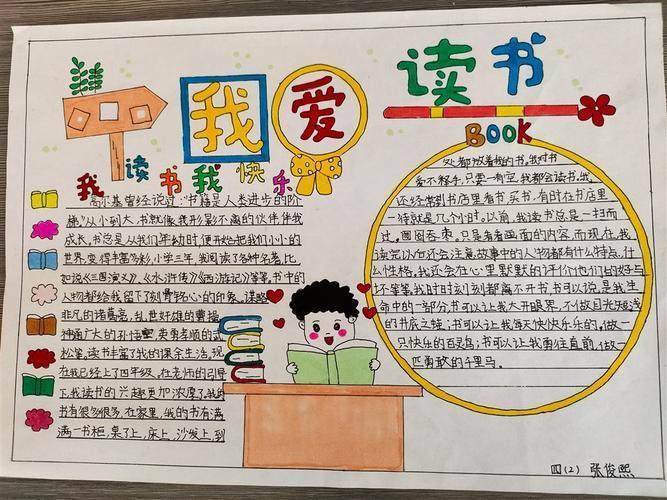 我爱读书
BOOK
我读书我快乐
高尔基曾经说过:"书籍是人类进步的阶
梯"从小到大,书就像我形影不离的伙伴伴我
成长,书总是从我们年幼时便开始把我们小小的
世界,变得丰富多彩,小学三年,我阅读了各种名著,比
如说《三国演义》,《水浒传》《西游记》等等,书中的
人物都给我留下了刻骨铭心的印象,谋略
非凡的诸葛亮,乱世奸雄的曹操
神通广大的孙悟空,英勇孝顺的武
松等,读书丰富了我的课余生活,现
在我已经上了四年级,在老师的引导
下,我读书的兴趣更加浓厚了,我的
书有很多很多,在家里,我的书有满
满一书柜,桌子上,床上,沙发上,到
处都放着我的书,我对书
爱不释手,只要一有空,我都会读书,我
还经常到书店里看书买书,有时在书店里
一待就是几个时。以前,我读书总是一扫而
过,囫囵吞枣。只是看看画面的内容,而现在,我
读完以后还会注意故事中的人物都有什么特点,什
么性格,我还会在心里默默的评价他们的好与
坏等等,我时时刻刻都离不开书,书可以说,是我生
命中的一部分,书可以让我大开眼界,不做目光短浅
的书底之蛙;书可以让我每天快快乐乐的,做一
只快乐的百灵鸟;书可以让我勇往直前,做一
匹勇敢的千里马。
四(2) 张俊熙